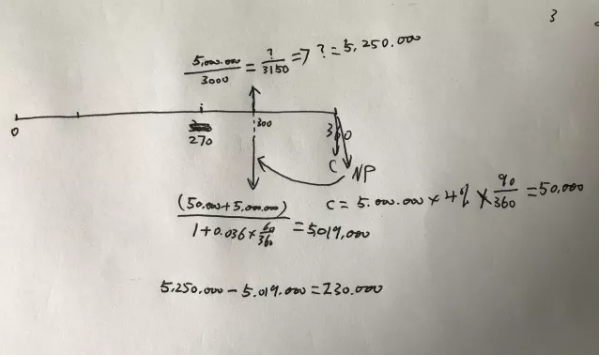 3
5,000.000/3000 = ?/3150 => ? = 5,250.000
0 270 300 360
C NP
(50.000+5,000.000)/(1+0.036×60/360) = 5,019,000
C = 5.000.000 × 4% × 90/360 = 50,000
5,250.000 - 5.019.000 = 230.000